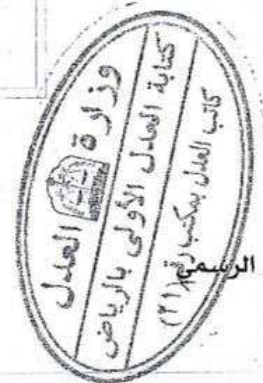 وزارة العدل
كتابة العدل الأولى بالرياض
كاتب العدل بمكتب رقم (٣١)
الرسمي